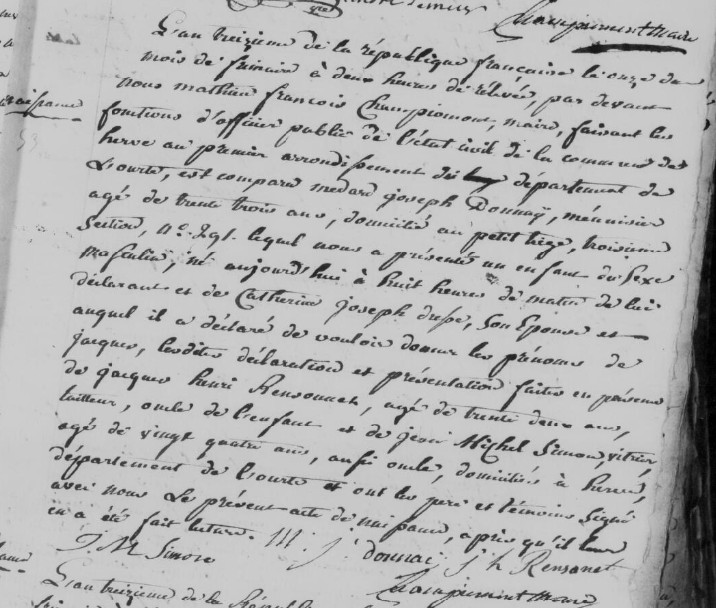 Champiomont Maire
L'an treizieme de la république française le onze du
mois de frimaire à deux heures de relevée, par devant
nous mathieu françois Champiomont, maire, faisant les
fonctions d'officier public de l'état civil de la commune de
herve au premier arrondissement du département de
L'ourte, est comparu medard joseph Donnay, ménuisier
agé de trente trois ans, domicilié au petit liège, troisieme
Section, n.º lequel nous a présenté un enfant du Sexe
masculin, né aujourd'hui à huit heures du matin de lui
déclarant et de Catherine joseph Son Epouse et
auquel il a déclaré de vouloir donner les prénoms de
jacques, lesdites déclaration et présentation faites en présence
de jacques henri Rensonnet, agé de trente deux ans,
tailleur, oncle de l'enfant et de jean Michel Simon, vitrier,
agé de vingt quatre ans, aussi oncle, domiciliés à herve,
département de L'ourte et ont les pere et témoins Signé
avec nous Le présent acte de naissance, après qu'il leur
en a été fait lecture.
J. M Simon j: donnai J h Rensonet
Champiomont Maire
L'an treizieme de la République